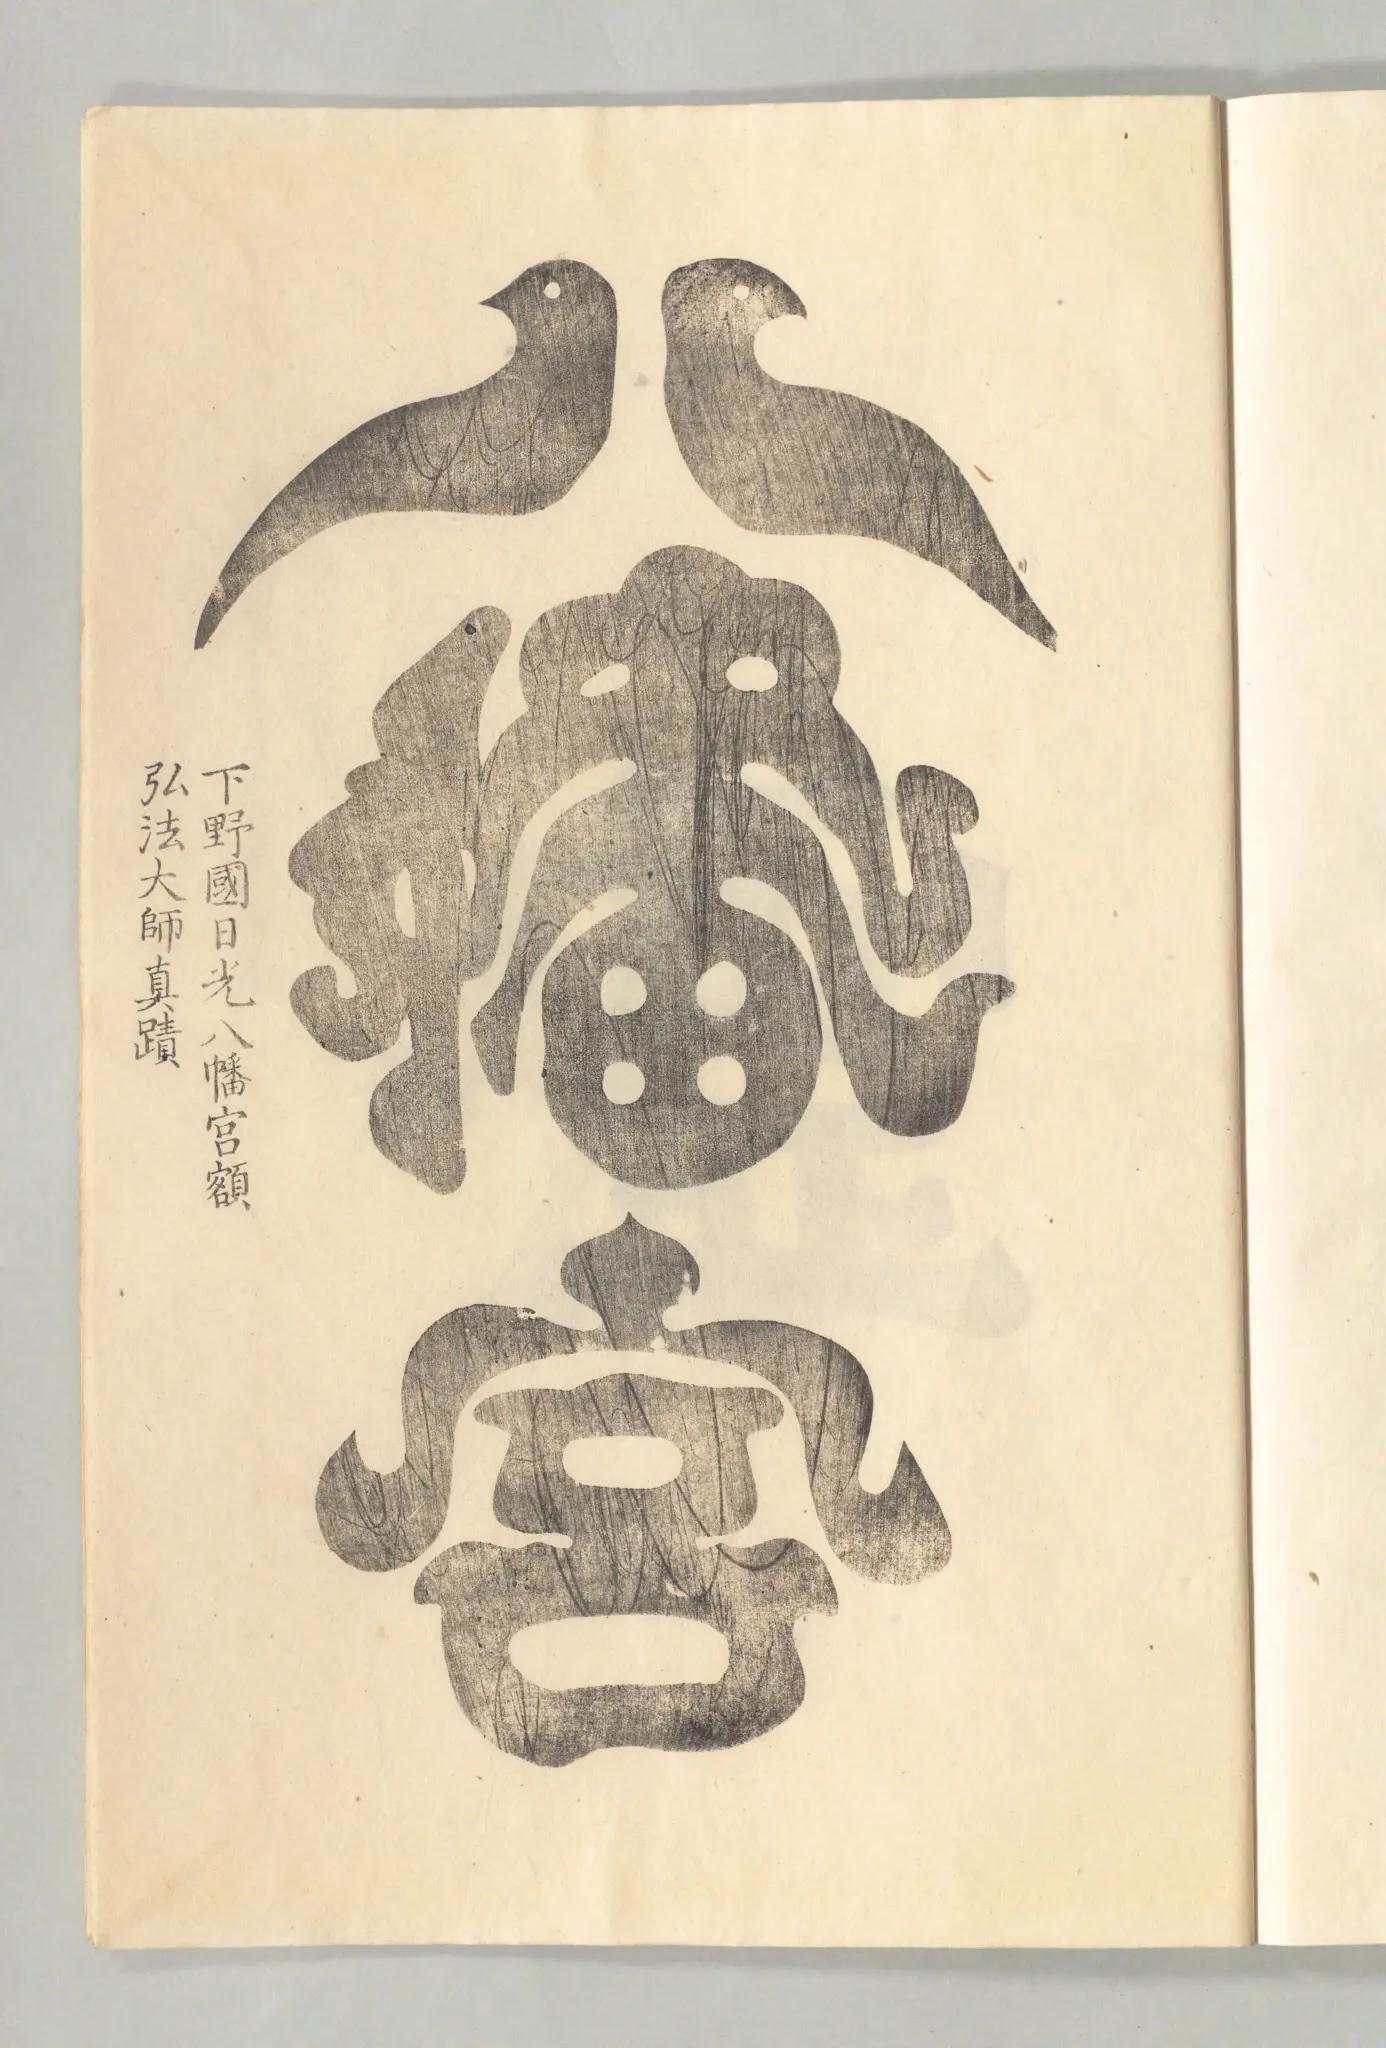 八幡宮
下野國日光八幡宮額
弘法大師真蹟